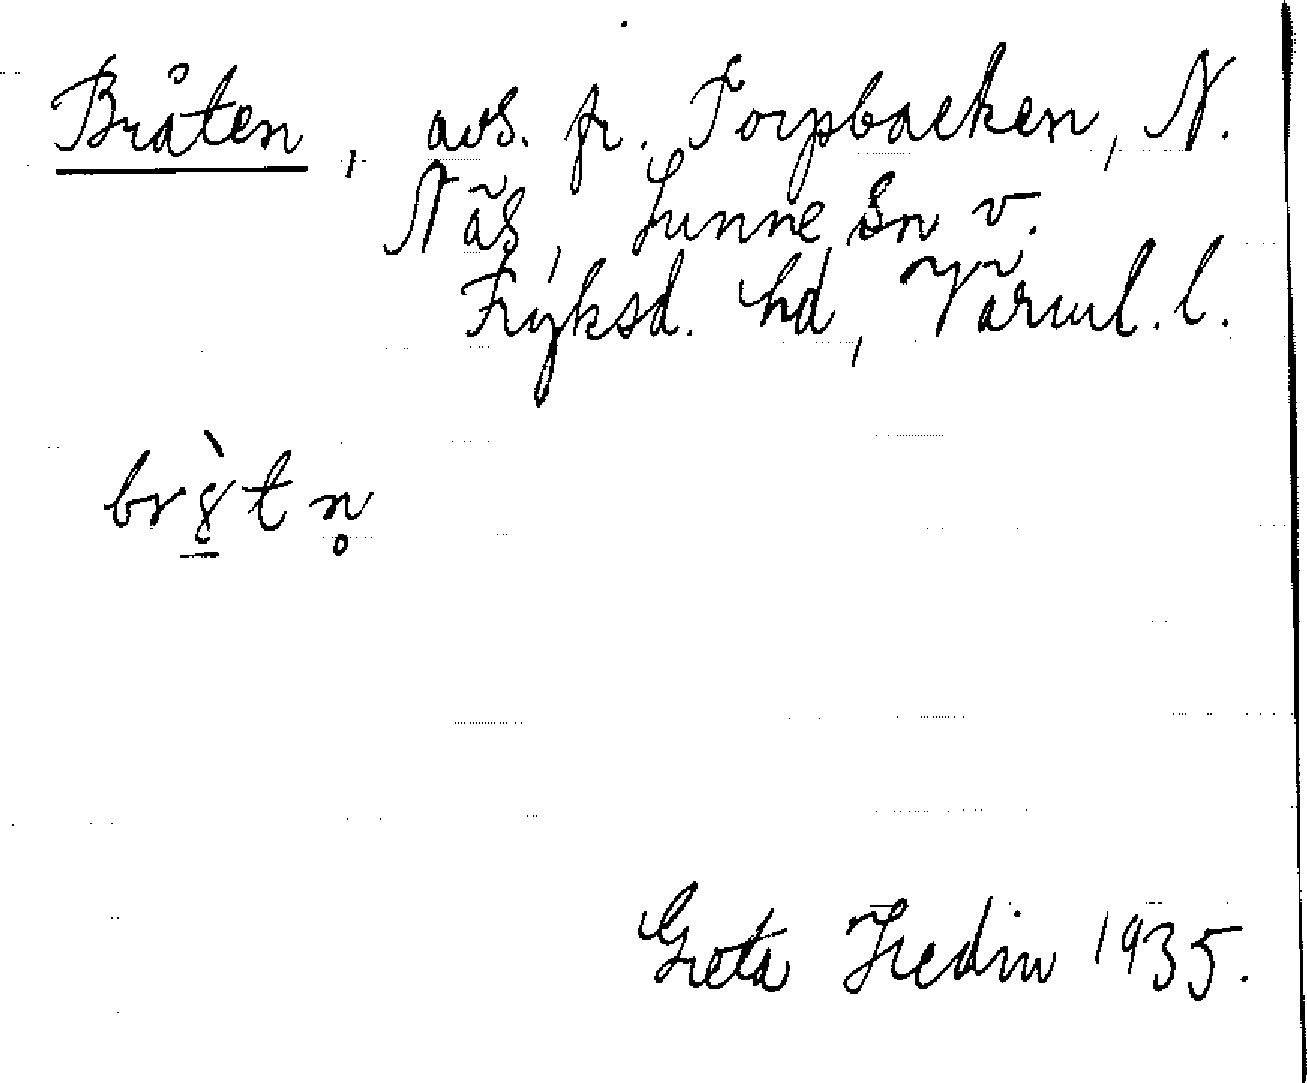 Bråten, avs. fr. Torpbacken, N.
Näs, Sunne sn v.
Fryksd. hd, Värml. l.
br8̠̀tn̥
Greta Hedin 1935.